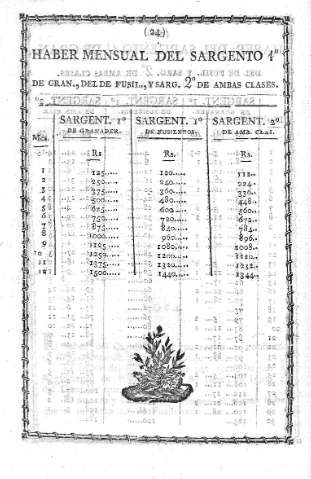 (24)
HABER MENSUAL DEL SARGENTO 1º
DE GRAN., DEL DE FUSIL., Y SARG. 2º DE AMBAS CLASES.
SARGENT. 1º SARGENT. 1º SARGENT. 2º
Mes. DE GRANADER. DE FUSILEROS. DE AMB. CLAS.
Rs Rs. Rs.
1 125..... 120.... 112..
2 250..... 240.... 224..
3 375..... 360.... 336..
4 500..... 480.... 448..
5 625..... 600.... 560..
6 750..... 720.... 672..
7 875..... 840.... 784..
8 1000..... 960.... 896..
9 1125..... 1080.... 1008..
10 1250..... 1200.... 1120..
11 1375..... 1320.... 1232..
12 1500..... 1440.... 1344..